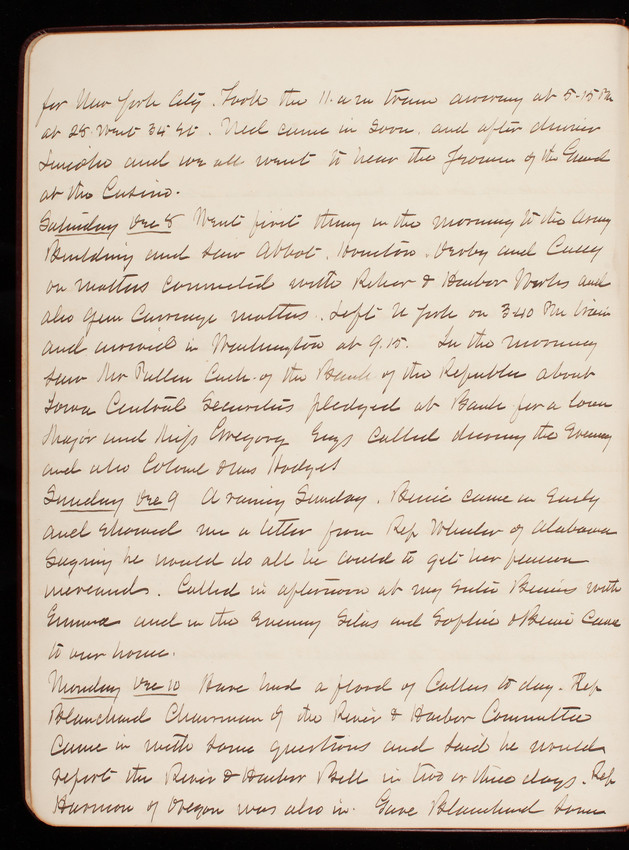 for New York City. Took the 11 a m train arriving at 5-15 PM
at 28 West 34 St. Ned came in soon and after dinner
and we all went to hear the Yeomen of the Guard
at the Casino.
Saturday Dec 8 Went first thing in the morning to the Army
Building and saw Abbot, Houston, Derby and Casey
on matters connected with River & Harbor Works and
also Gun Carriage matters. Left N York on 3-40 PM train
and arrived in Washington at 9.15. In the morning
saw Mr Pullen Cash. of the Bank of the Republic about
Iowa Central Securities pledged at Bank for a loan
Major and Miss Gregory called during the Evening
and also Colonel & Mrs Hodges
Sunday Dec 9 A rainy Sunday. Bessie came in Early
and showed me a letter from Rep Wheeler of Alabama
Saying he would do all he could to get her pension
increased. Called in afternoon at my with
Emma and in the Evening Silas and Sophie & Bessie Came
to our home.
Monday Dec 10 Have had a flood of Callers to day. Rep
Blanchard Chairman of the River & Harbor Committee
Came in with some questions and said he would
report the River & Harbor Bill in two or three days. Rep
Hermann of Oregon was also in. Gave Blanchard some